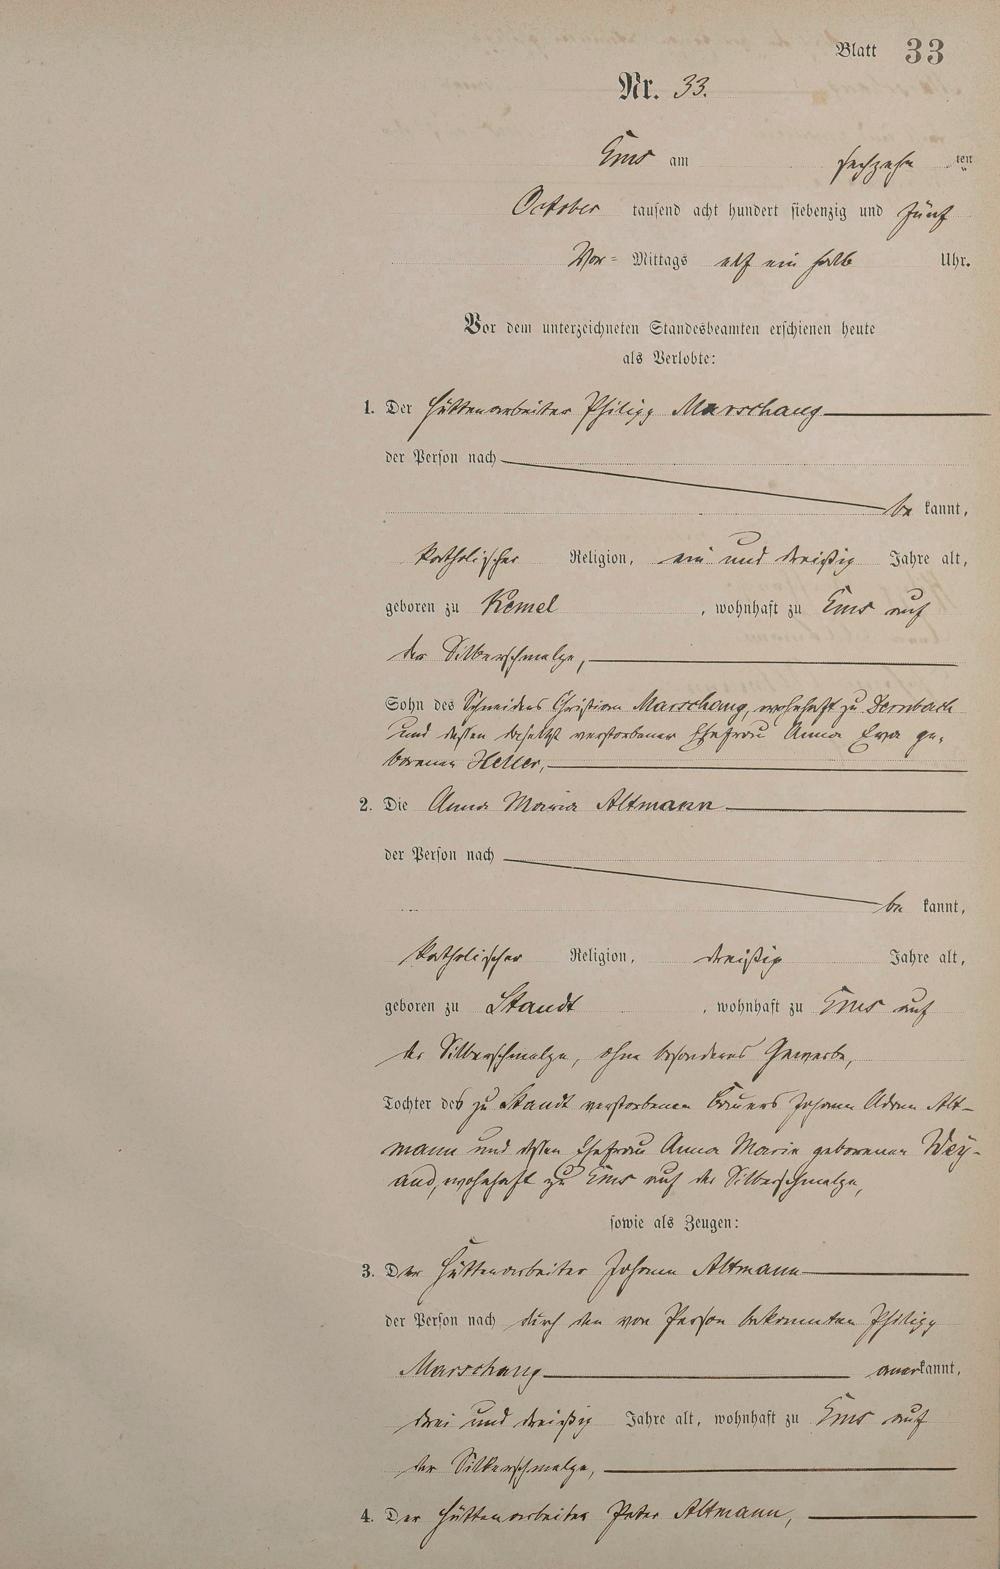 Blatt 33
Nr. 33.
Ems am sechzehn ten
October tausend acht hundert siebenzig und fünf
Vor= Mittags elf ein halb Uhr.
Vor dem unterzeichneten Standesbeamten erschienen heute
als Verlobte:
1. Der Hüttenarbeiter Philipp Marschang
der Person nach
be kannt,
katholischer Religion, ein und dreißig Jahre alt,
geboren zu Kemel, wohnhaft zu Ems auf
der Silberschmelze,
Sohn des Schneiders Christian Marschang, wohnhaft zu Dernbach
und dessen daselbst verstorbener Ehefrau Anna Eva ge-
borenen Heller,
2. Die Anna Maria Altmann
der Person nach
be kannt,
katholischer Religion, dreißig Jahre alt,
geboren zu Staudt, wohnhaft zu Ems auf
der Silberschmelze, ohne besonderes Gewerbe,
Tochter des zu Staudt verstorbenen Bauers Johann Adam Alt-
mann und dessen Ehefrau Anna Maria geborenen Wey-
and, wohnhaft zu Ems auf der Silberschmelze,
sowie als Zeugen:
3. Der Hüttenarbeiter Johann Altmann
der Person nach durch den von Person bekannten Philipp
Marschang anerkannt,
drei und dreißig Jahre alt, wohnhaft zu Ems auf
der Silberschmelze,
4. Der Hüttenarbeiter Peter Altmann,